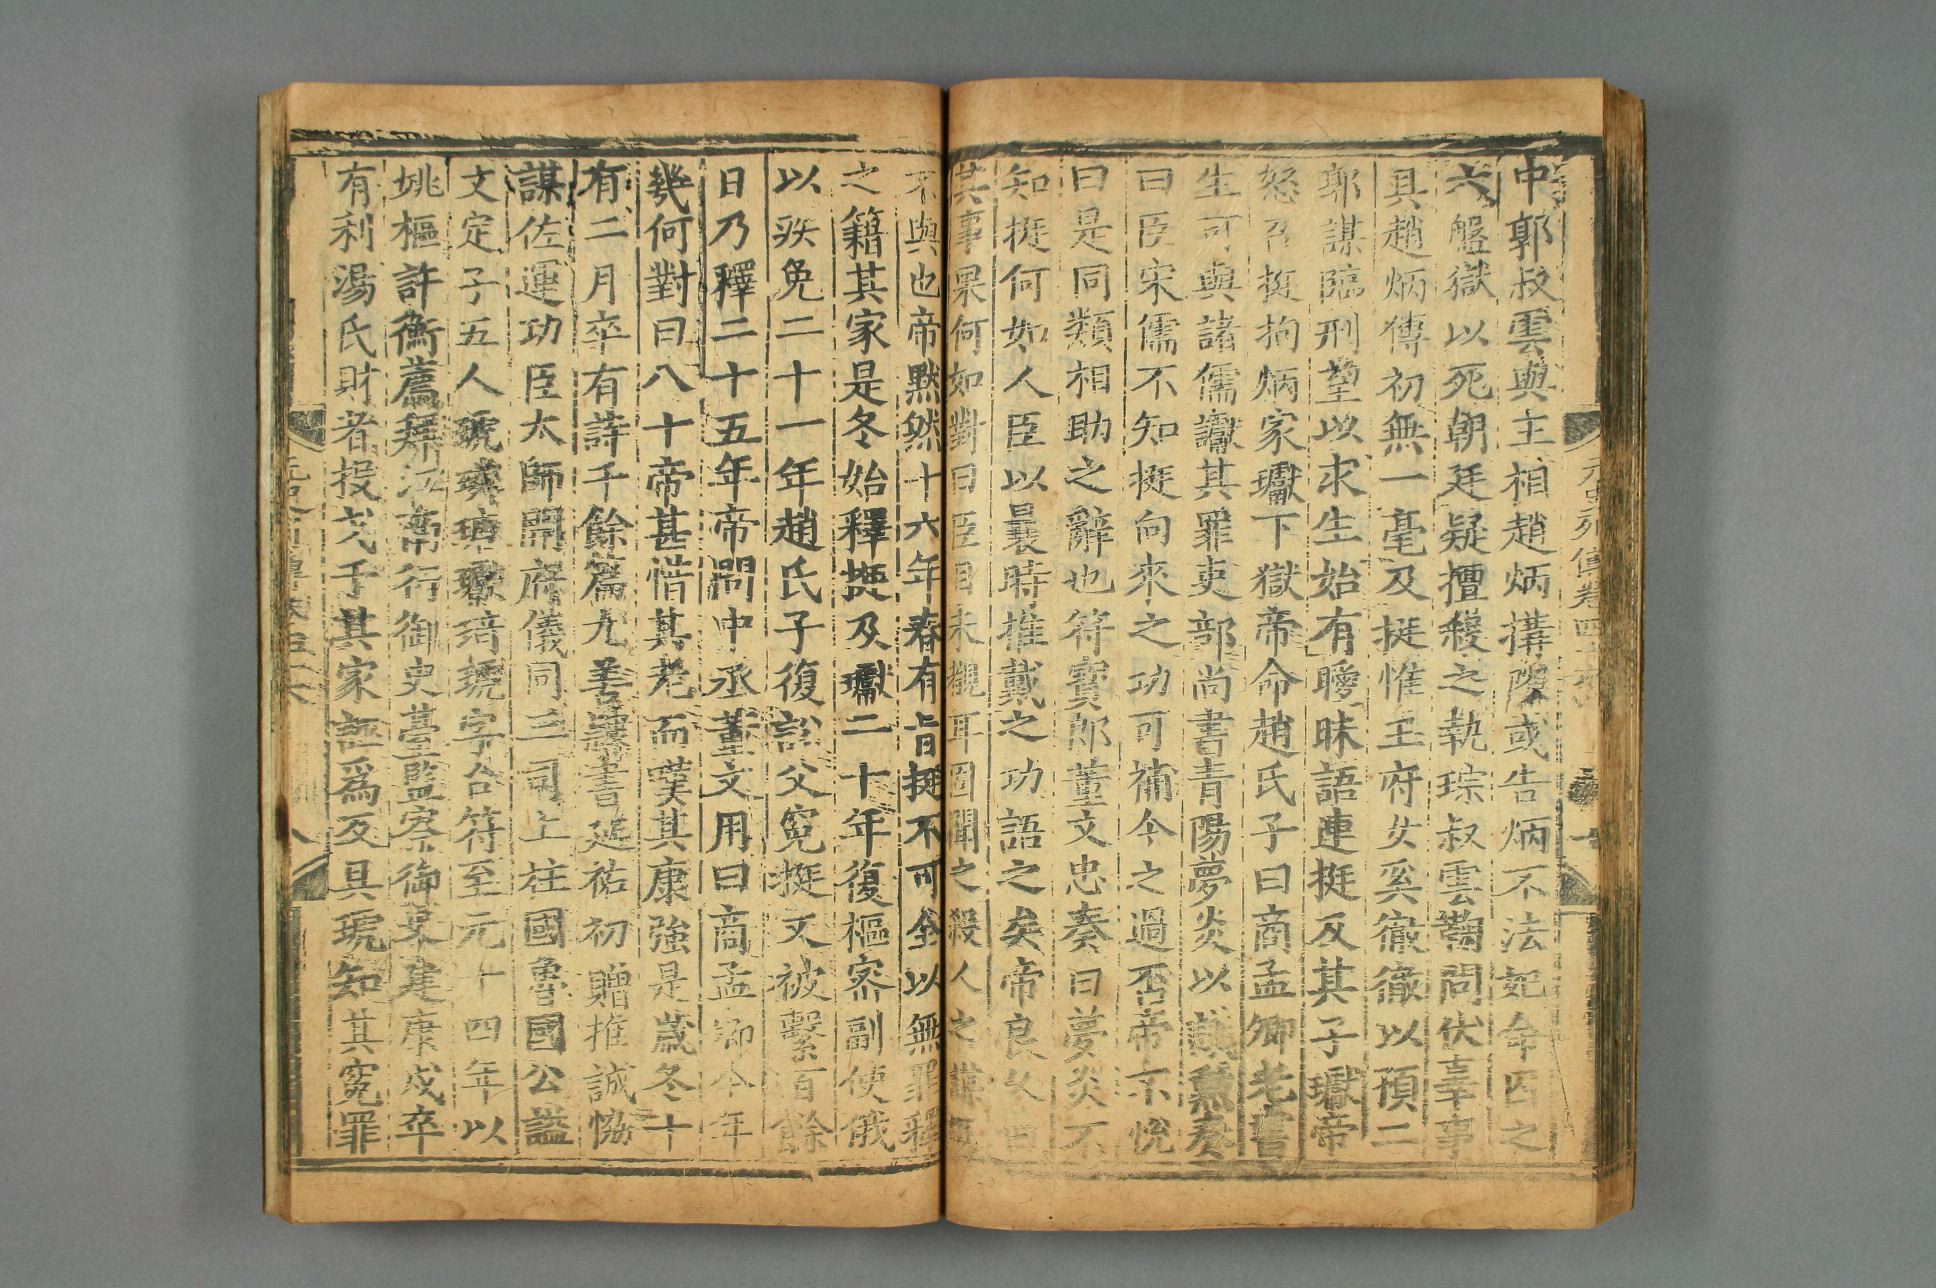 中郭叔雲與王相趙炳搆隙或告炳不法妃命囚之
六盤獄以死朝廷疑擅殺之執琮叔雲鞫問伏辜事
具趙炳傳初無一毫及挺惟王府女奚徹徹以預二
郭謀臨刑望以求生始有曖昧語連挺及其子瓛帝
怒召挺拘炳家瓛下獄帝命趙氏子曰商孟卿老書
生可與諸儒讞其罪吏部尚書青陽夢炎以議勳奏
曰臣宋儒不知挺向來之功可補今之過否帝不悅
曰是同類相助之辭也符寶郎董文忠奏曰夢炎不
知挺何如人臣以曩時推戴之功語之矣帝良久曰
其事果何如對曰臣目未覩耳固聞之殺人之謀
不與也帝默然十六年春有旨挺不可全以無罪釋
之籍其家是冬始釋挺及瓛二十年復樞密副使俄
以疾免二十一年趙氏子復訟父寃挺又被繫百餘
日乃釋二十五年帝問中丞董文用曰商孟卿今年
幾何對曰八十帝甚惜其老而嘆其康強是歲冬十
有二月卒有詩千餘篇尤善隸書延祐初贈推誠恊
謀佐運功臣太師開府儀同三司上柱國魯國公諡
文定子五人琥璘瑭瓛琦琥字台符至元十四年以
姚樞許衡薦拜江南行御史臺監察御史建康戍卒
有利湯氏財者投戈于其家誣爲反具琥知其寃罪
元史列傳卷四十六
八